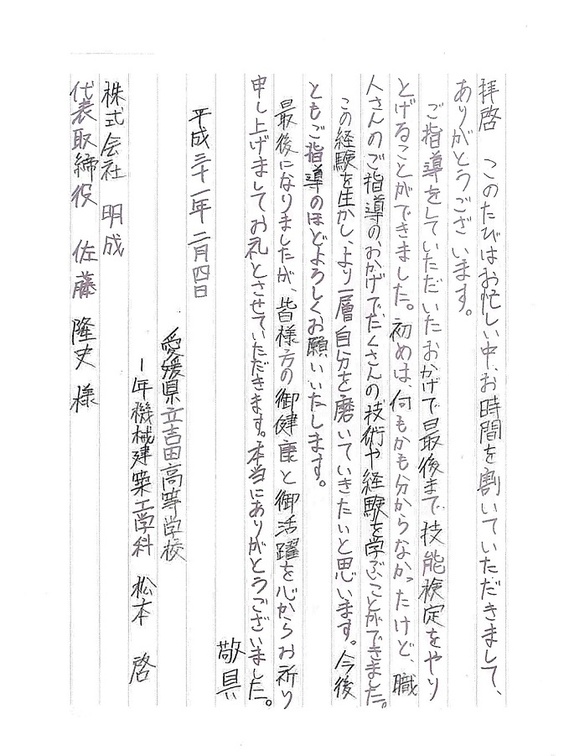 拝啓　このたびはお忙しい中、お時間を割いていただきまして、
ありがとうございます。
ご指導をしていただいたおかげで最後まで技能検定をやり
とげることができました。初めは、何もかも分からなかったけど、職
人さんのご指導のおかげでたくさんの技術や経験を学ぶことができました。
この経験を生かし、より一層自分を磨いていきたいと思います。今後
ともご指導のほどよろしくお願いいたします。
最後になりましたが、皆様方の御健康と御活躍を心からお祈り
申し上げましてお礼とさせていただきます。本当にありがとうございました。
敬具
平成三十一年二月四日
愛媛県立吉田高等学校
1年機械建築工学科　松本　啓
株式会社　明成
代表取締役　佐藤　隆丈　様